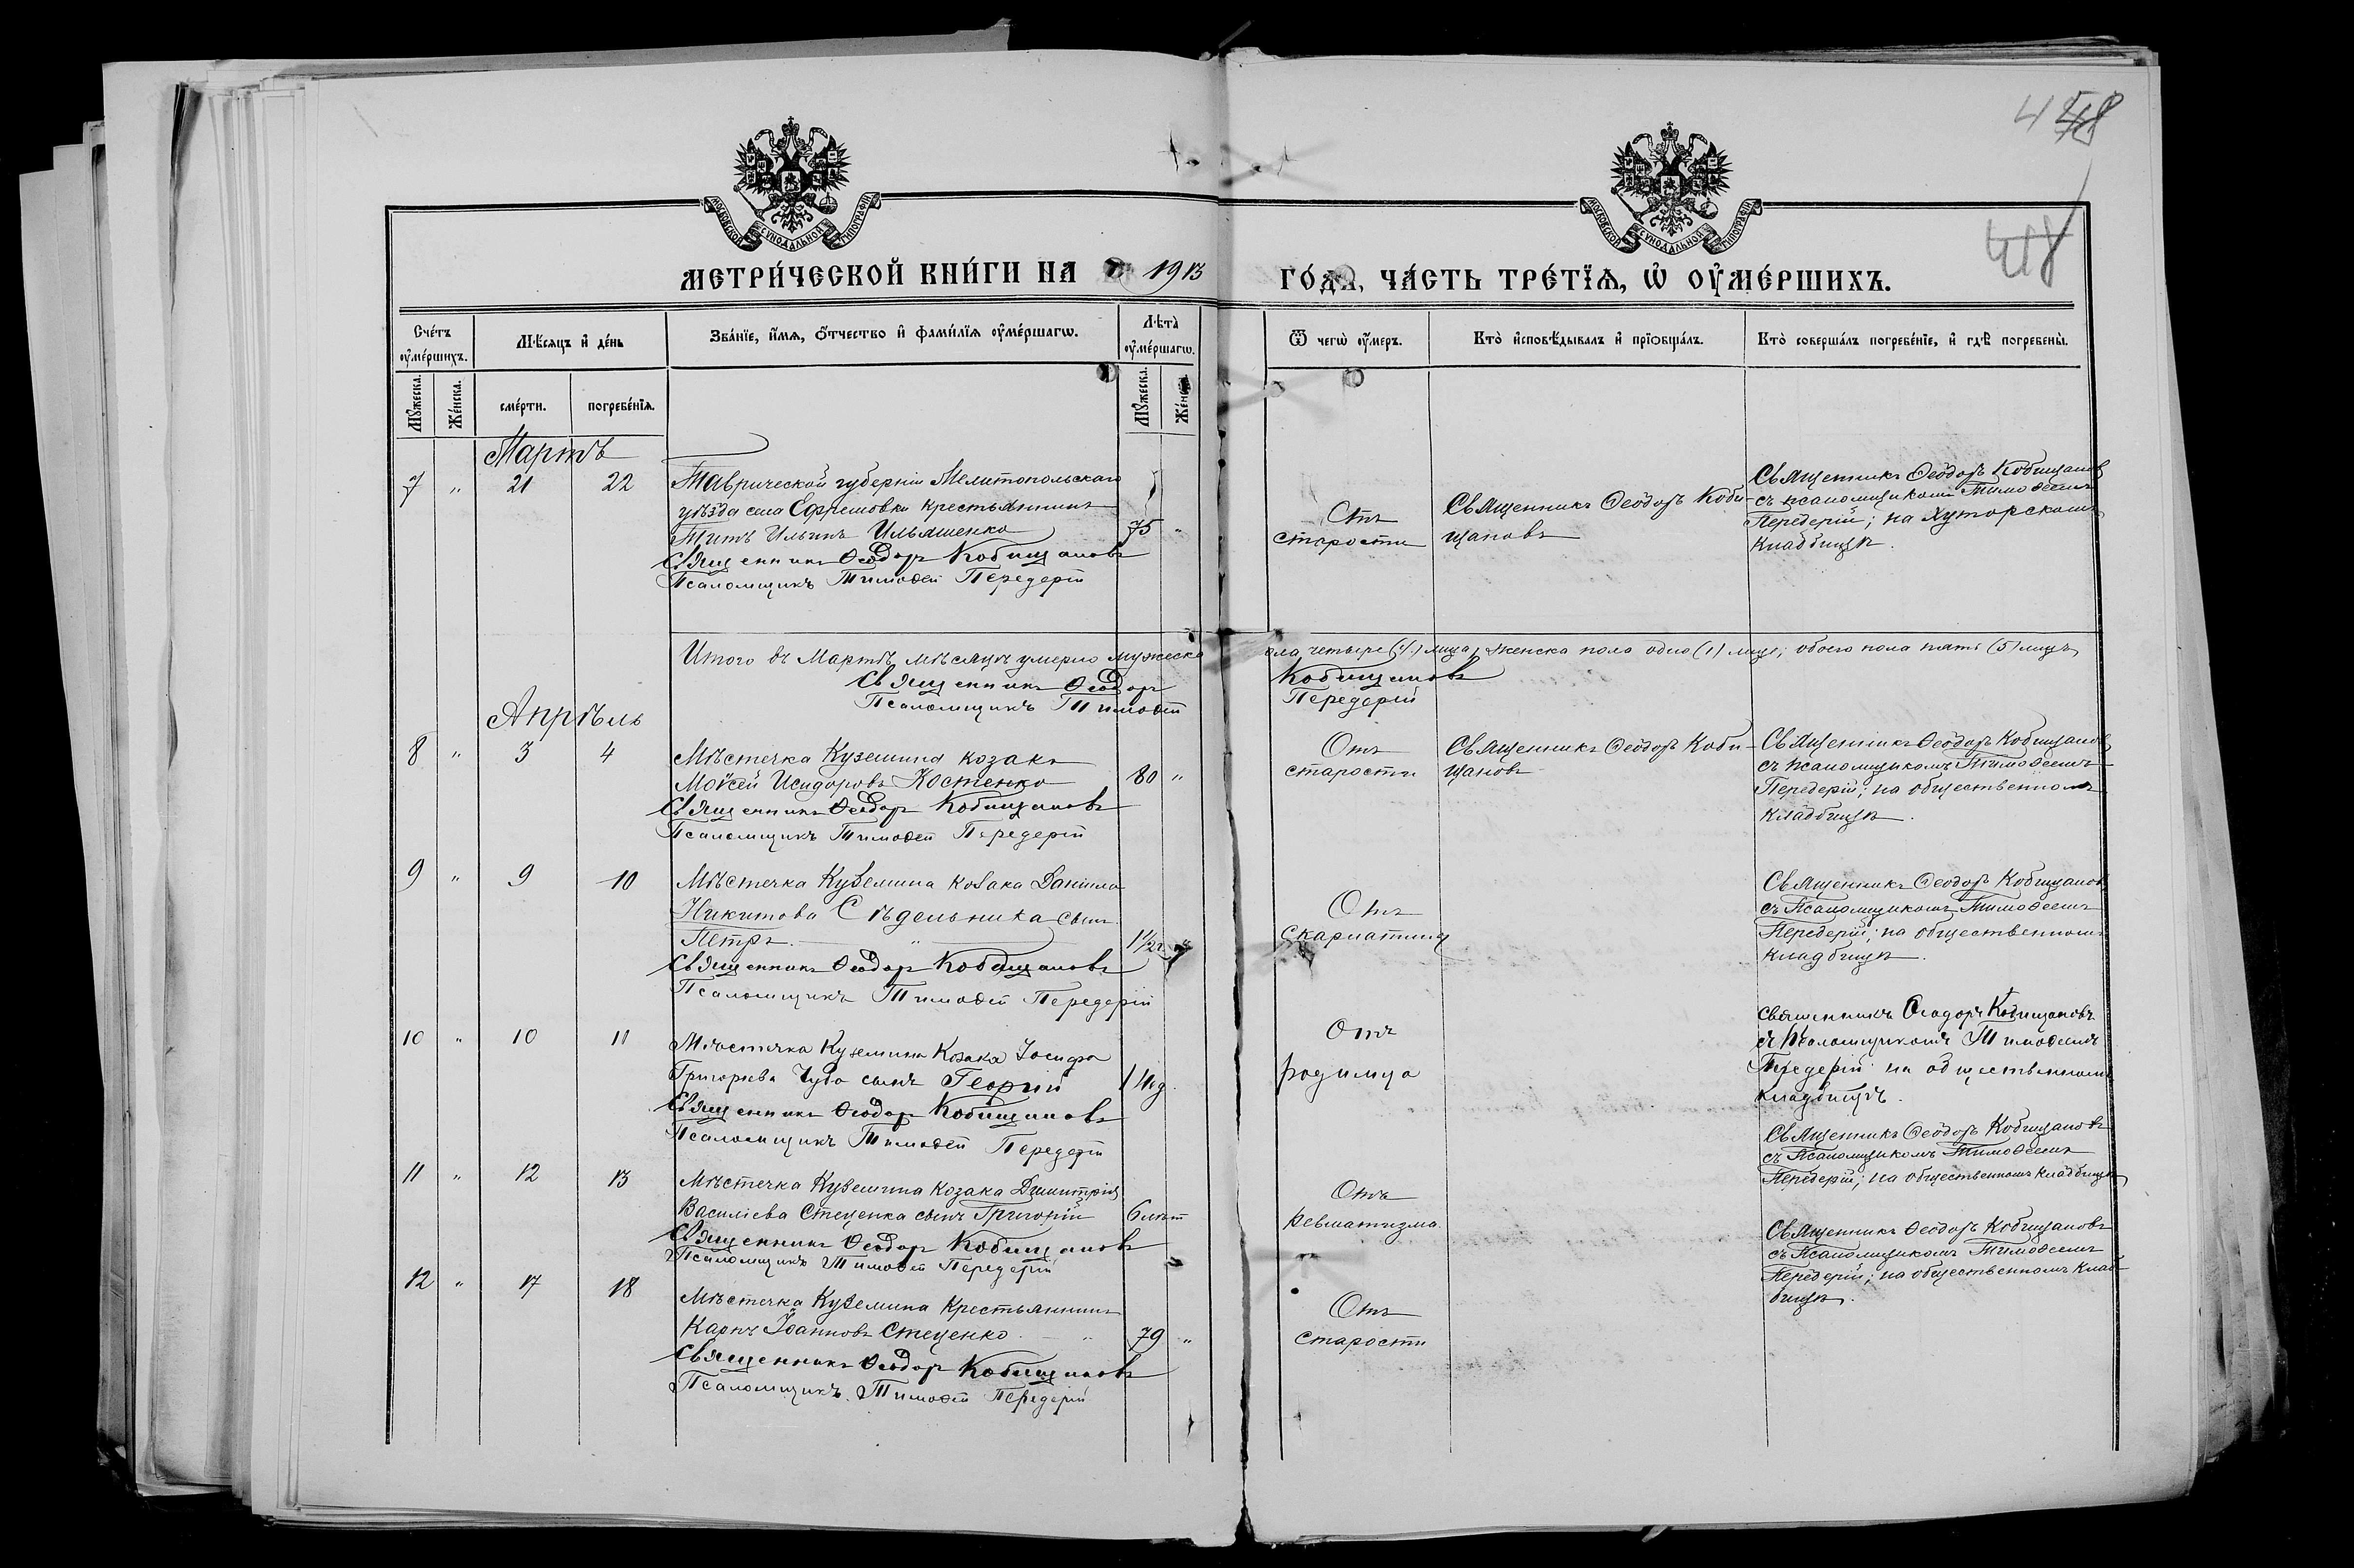 МОСКОВСКОЙ СѴНОДАЛЬНОЙ ТИПОГРАФІИ
МОСКОВСКОЙ СѴНОДАЛЬНОЙ ТИПОГРАФІИ
МЕТРИ́ЧЕСКОЙ КНИ́ГИ НА 1913
ГО́ДА, ЧА́СТЬ ТРЕ́ТЇѦ, Ѡ҆ ОУ҆МЕ́РШИХЪ.
Сче́тъ оу҆ме́ршихъ.
Мѣ́сяцъ и҆ де́нь
Зва́нїе, и҆́мя, ѻ҆́тчество и҆ фами́лїя оу҆ме́ршагѡ.
Лѣ̀та оу҆ме́ршагѡ.
Ѿ чегѡ̀ оу҆́меръ.
Кто̀ и҆сповѣ́дывалъ и҆ прїѡбща́лъ.
Кто̀ соверша́лъ погребе́нїе, и҆ гдѣ̀ погребены̀.
Мꙋ́жеска.
Же́нска.
сме́рти.
погребе́нїя.
Мꙋ́жеска.
Же́нска.
Мартъ
7 " 21 22
Таврической губерніи Мелитопольскаго
уѣзда села Ефремовки крестьянинъ
Титъ Ильинъ Ильяшенко 75 "
Священникъ Ѳеодоръ Кобищановъ
Псаломщикъ Тимоѳей Передерій
Отъ
старости
Священникъ Ѳеодоръ Коби-
щановъ
Священникъ Ѳеодоръ Кобищановъ
съ псаломщикомъ Тимоѳеемъ
Передерій; на Хуторскомъ
кладбищѣ.
Итого въ Мартѣ мѣсяцѣ умерло мужеска
пола четыре (4) лица, женска пола одно (1) лице; обоего пола пять (5) лицъ
Священникъ Ѳеодоръ Кобищановъ
Псаломщикъ Тимоѳей Передерій
Апрѣль
8 " 3 4
Мѣстечка Куземина козакъ
Моѵсей Исидоровъ Костенко 80 "
Священникъ Ѳеодоръ Кобищановъ
Псаломщикъ Тимоѳей Передерій
Отъ
старости
Священникъ Ѳеодоръ Коби-
щановъ
Священникъ Ѳеодоръ Кобищановъ
съ псаломщикомъ Тимоѳеемъ
Передерій; на общественномъ
кладбищѣ.
9 " 9 10
Мѣстечка Куземина козака Даніила
Никитова Сѣдельника сынъ
Петръ. " 1½ г. "
Священникъ Ѳеодоръ Кобищановъ
Псаломщикъ Тимоѳей Передерій
Отъ
скарлатины
Священникъ Ѳеодоръ Кобищановъ
съ Псаломщикомъ Тимоѳеемъ
Передерій; на общественномъ
кладбищѣ.
10 " 10 11
Мѣстечка Куземина Козака Іосифа
Григорьева Чуба сынъ Георгій 1 нед.
Священникъ Ѳеодоръ Кобищановъ
Псаломщикъ Тимоѳей Передерій
Отъ
родимца
Священникъ Ѳеодоръ Кобищановъ
съ Псаломщикомъ Тимоѳеемъ
Передерій на общественномъ
кладбищѣ.
11 " 12 13
Мѣстечка Куземина козака Димитрія
Василіева Стеценка сынъ Григорій 6 лѣт
Священникъ Ѳеодоръ Кобищановъ
Псаломщикъ Тимоѳей Передерій
Отъ
ревматизма.
Священникъ Ѳеодоръ Кобищановъ
съ Псаломщикомъ Тимоѳеемъ
Передерій; на общественномъ кладбищѣ
12 " 17 18
Мѣстечка Куземина Крестьянинъ
Карпъ Іоанновъ Стеценко " 79 "
Священникъ Ѳеодоръ Кобищановъ
Псаломщикъ Тимоѳей Передерій
Отъ
старости
Священникъ Ѳеодоръ Кобищановъ
съ Псаломщикомъ Тимоѳеемъ
Передерій; на общественномъ клад-
бищѣ.